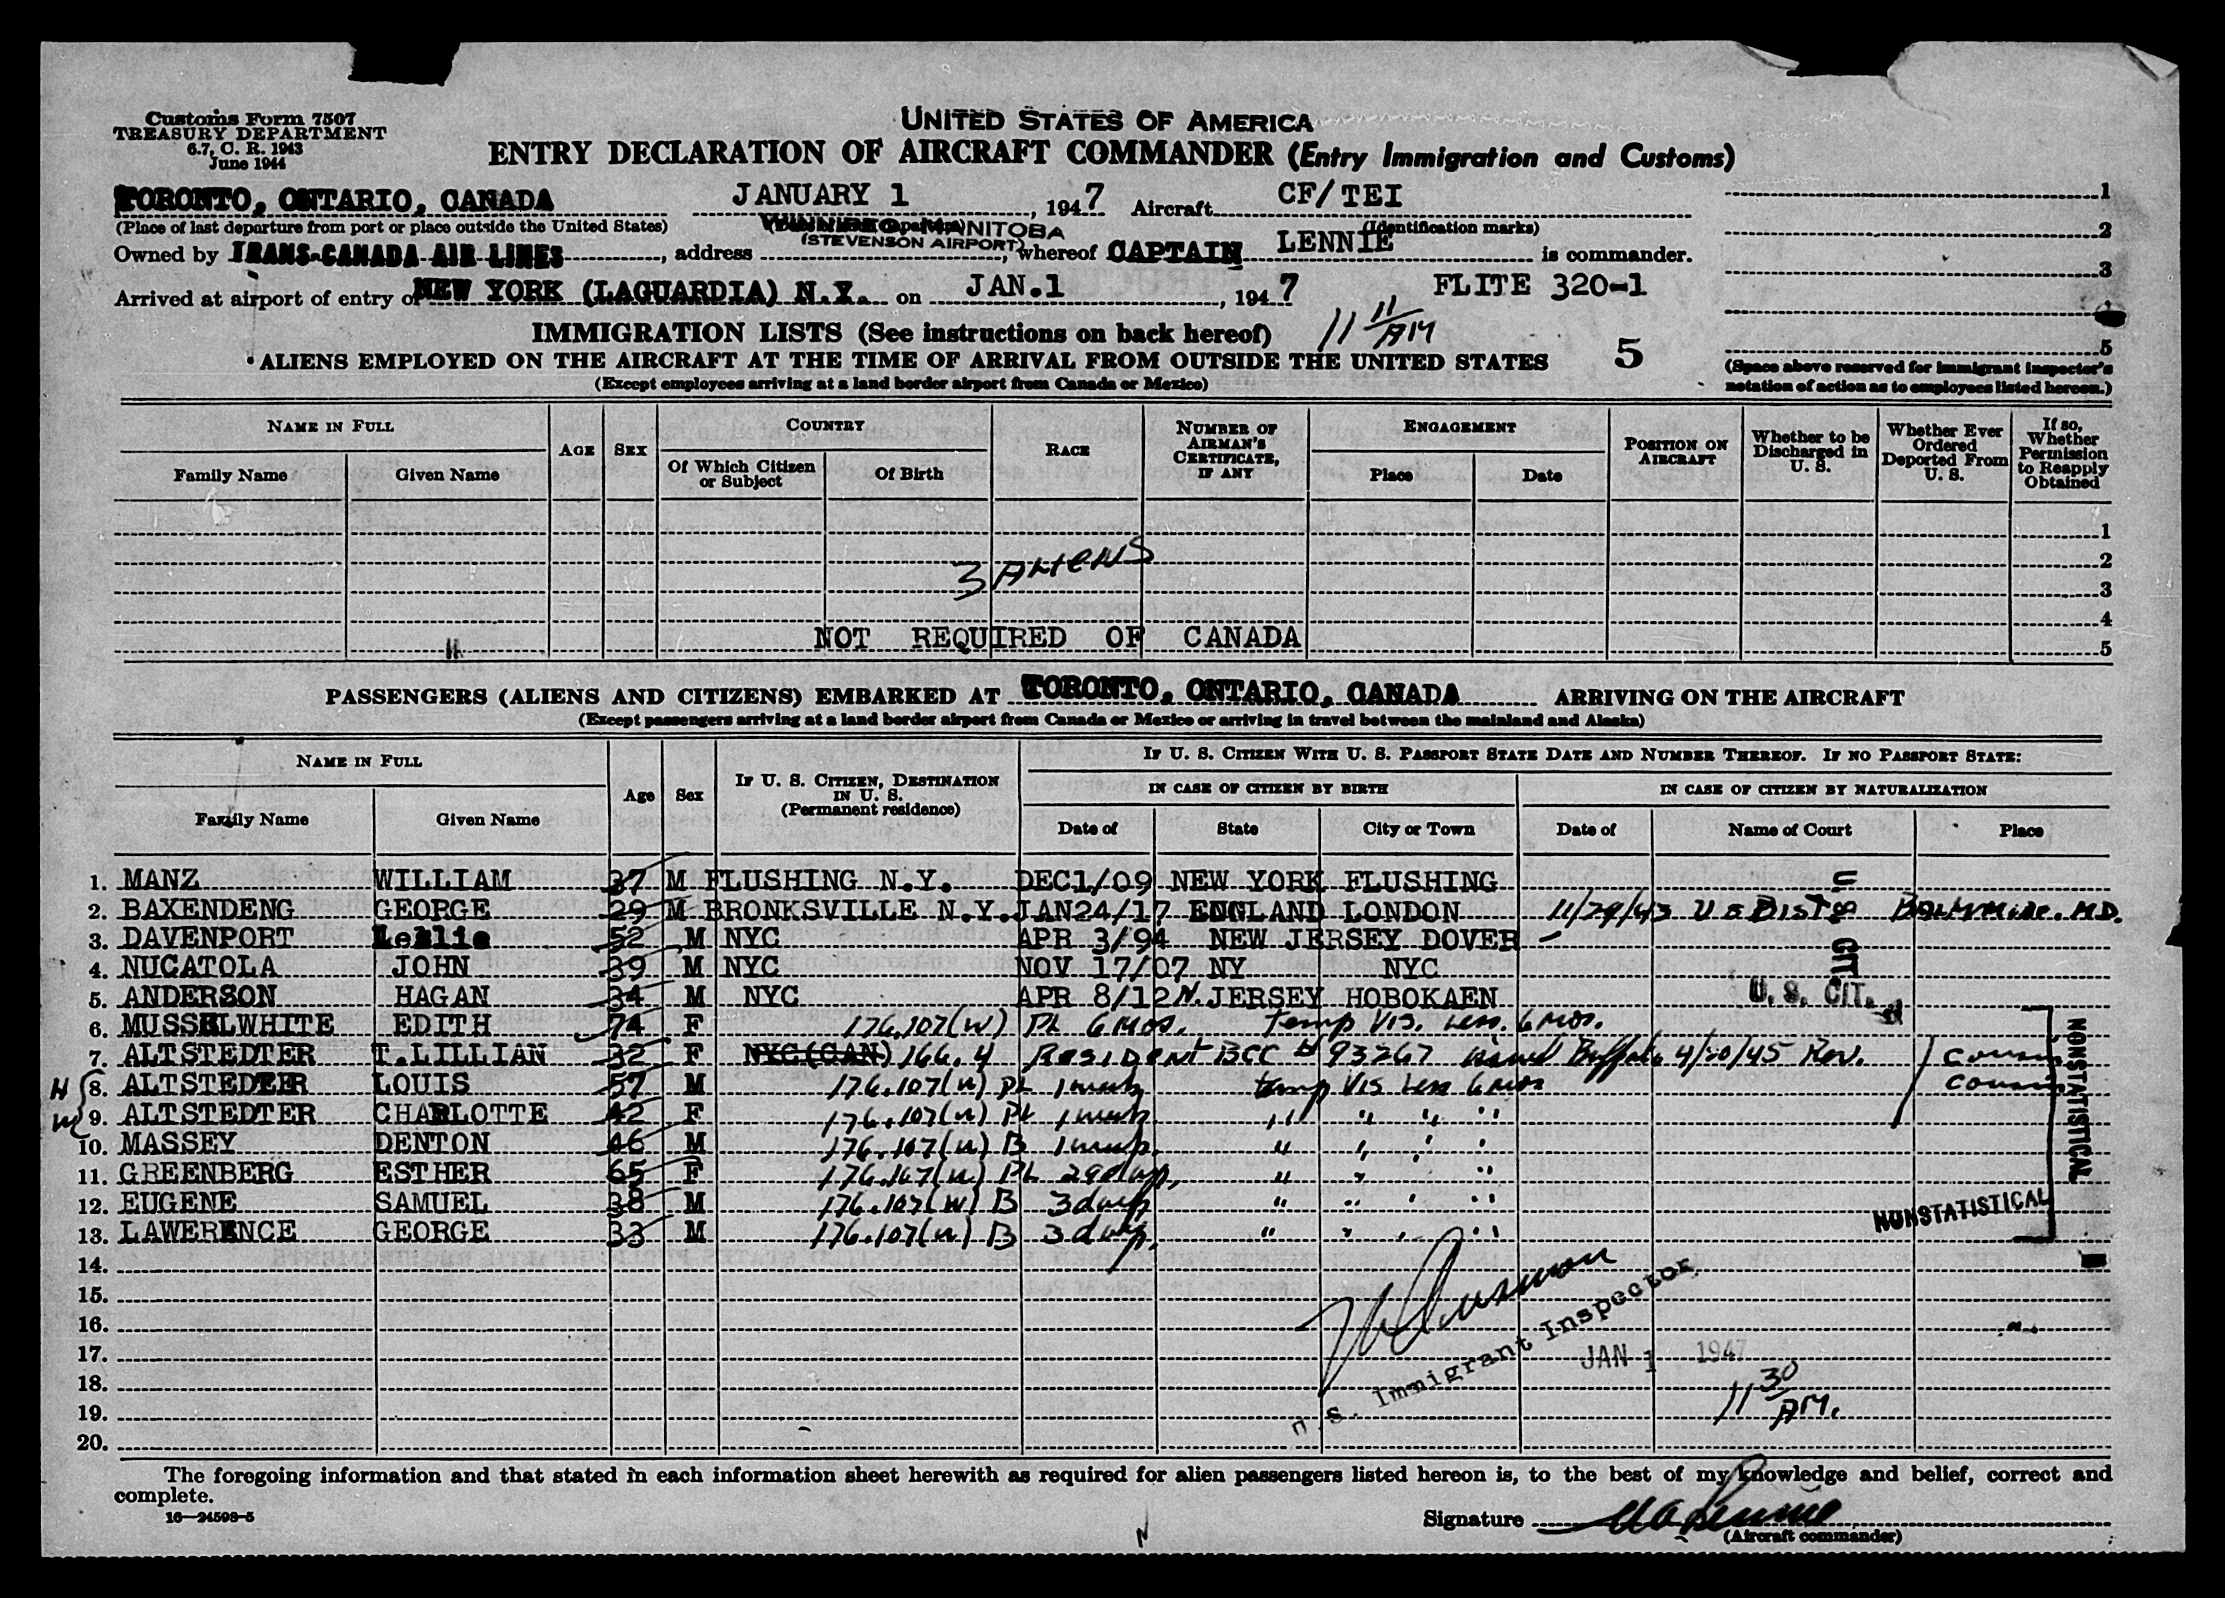 Customs Form 7507
TREASURY DEPARTMENT
6.7, C. R. 1943
June 1944
UNITED STATES OF AMERICA
ENTRY DECLARATION OF AIRCRAFT COMMANDER (Entry Immigration and Customs)
TORONTO, ONTARIO, CANADA JANUARY 1, 1947 Aircraft CF/TEI
(Place of last departure from port or place outside the United States) (Identification marks)
WINNIPEG, MANITOBA
(STEVENSON AIRPORT)
Owned by TRANS-CANADA AIR LINES, address, whereof CAPTAIN LENNIE is commander.
Arrived at airport of entry of NEW YORK (LAGUARDIA) N.Y. on JAN.1, 1947 FLITE 320-1
1
2
3
5
(Space above reserved for immigrant inspector's notation of action as to employees listed hereon.)
IMMIGRATION LISTS (See instructions on back hereof) 11 11/AM
ALIENS EMPLOYED ON THE AIRCRAFT AT THE TIME OF ARRIVAL FROM OUTSIDE THE UNITED STATES 5
(Except employees arriving at a land border airport from Canada or Mexico)
NAME IN FULL AGE SEX COUNTRY RACE NUMBER OF AIRMAN'S CERTIFICATE, IF ANY ENGAGEMENT POSITION ON AIRCRAFT Whether to be Discharged in U. S. Whether Ever Ordered Deported From U. S. If so, Whether Permission to Reapply Obtained
Family Name Given Name Of Which Citizen or Subject Of Birth Place Date
1
2
3 ALIENS
3
4
NOT REQUIRED OF CANADA
5
PASSENGERS (ALIENS AND CITIZENS) EMBARKED AT TORONTO, ONTARIO, CANADA ARRIVING ON THE AIRCRAFT
(Except passengers arriving at a land border airport from Canada or Mexico or arriving in travel between the mainland and Alaska)
NAME IN FULL Age Sex IF U. S. CITIZEN, DESTINATION IN U. S. (Permanent residence) IF U. S. CITIZEN WITH U. S. PASSPORT STATE DATE AND NUMBER THEREOF. IF NO PASSPORT STATE:
IN CASE OF CITIZEN BY BIRTH IN CASE OF CITIZEN BY NATURALIZATION
Family Name Given Name Date of State City or Town Date of Name of Court Place
1. MANZ WILLIAM 37 M FLUSHING N.Y. DEC1/09 NEW YORK FLUSHING
2. BAXENDENG GEORGE 29 M BRONKSVILLE N.Y. JAN24/17 ENGLAND LONDON 11/29/43 U S DIST Baltimore. MD.
3. DAVENPORT Leslie 52 M NYC APR 3/94 NEW JERSEY DOVER
4. NUCATOLA JOHN 39 M NYC NOV 17/07 NY NYC
U. S. CIT
5. ANDERSON HAGAN 34 M NYC APR 8/12 N. JERSEY HOBOKAEN U. S. CIT.
6. MUSSELWHITE EDITH 74 F 176.107(W) PL 6 mos. temp Vis. less. 6 mos.
7. ALTSTEDTER T.LILLIAN 32 F NYC(CAN) 166.4 Resident BCC # 93267 issued Buffalo 4/20/45 Rev. cousin
H 8. ALTSTEDTER LOUIS 57 M 176.107(W) PL 1 week temp Vis less 6 mos cousin
W 9. ALTSTEDTER CHARLOTTE 42 F 176.107(W) PL 1 week " " " "
10. MASSEY DENTON 46 M 176.107(W) B 1 week " " " "
11. GREENBERG ESTHER 65 F 176.107(W) PL 29 days. " " "
12. EUGENE SAMUEL 38 M 176.107(W) B 3 days " " " "
13. LAWERENCE GEORGE 33 M 176.107(W) B 3 days. " " " "
NONSTATISTICAL
NONSTATISTICAL
14.
15.
16.
17.
18.
19.
20.
U.S. Immigrant Inspector
JAN 1 1947
11 30/AM.
The foregoing information and that stated in each information sheet herewith as required for alien passengers listed hereon is, to the best of my knowledge and belief, correct and
complete.
16—24598-5
Signature
(Aircraft commander)